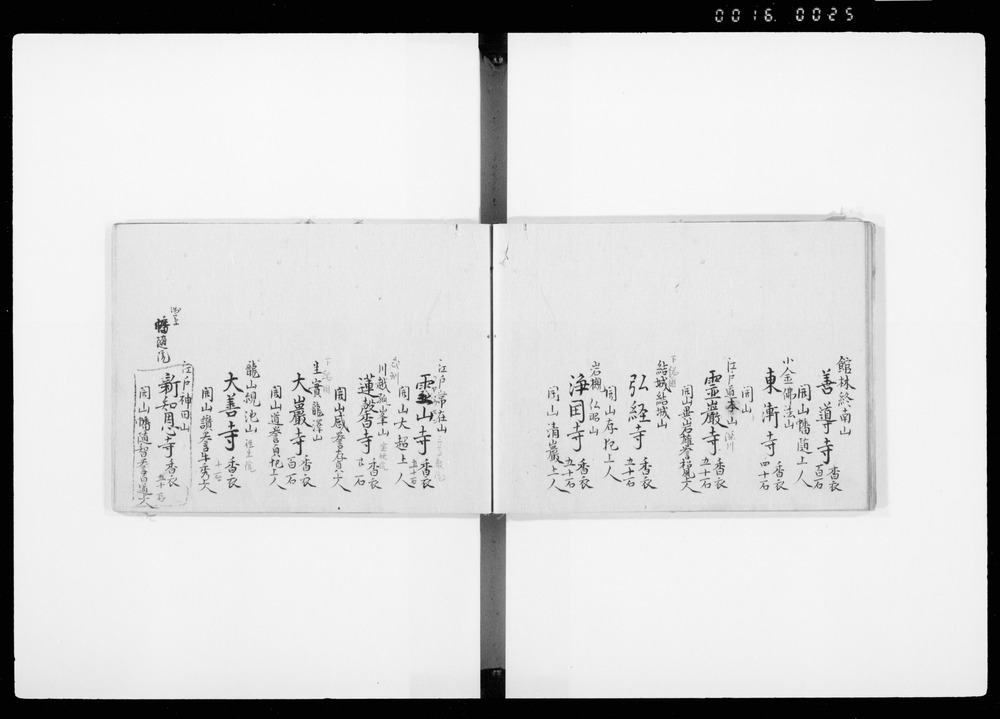 0016 0025
館林終南山
善導寺 香衣 百石
開山幡随上人
小金佛法山
東漸寺 香衣 四十石
開山
江戸道本山 深川
靈巖寺 香衣 五十石
下総国
結城結城山
弘経寺 香衣 五十石
開山存把上人
岩槻仏眼山
浄国寺 香衣 五十石
開山清巖上人
江戸常在山
霊山寺 香衣 五十石
開山大超上人
武州
川越孤峯山 宝池院
蓮馨寺 香衣 石
開山感誉存貞大
下総国
生実龍澤山
大巖寺 香衣 百石
開山道誉貞把上人
龍山見池山 往生院
大善寺 香衣 十石
開山讃誉牛秀大
江戸神田山
新知恩寺 香衣 五十石
幡随院
開山幡随智誉 道大